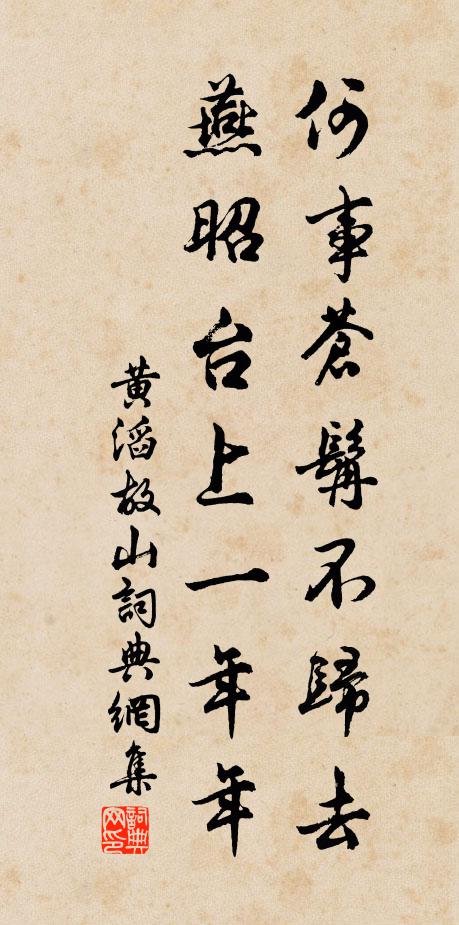 何事蒼髯不歸去
燕昭台上一年年
黃滔故山詞典網集
詞典网印